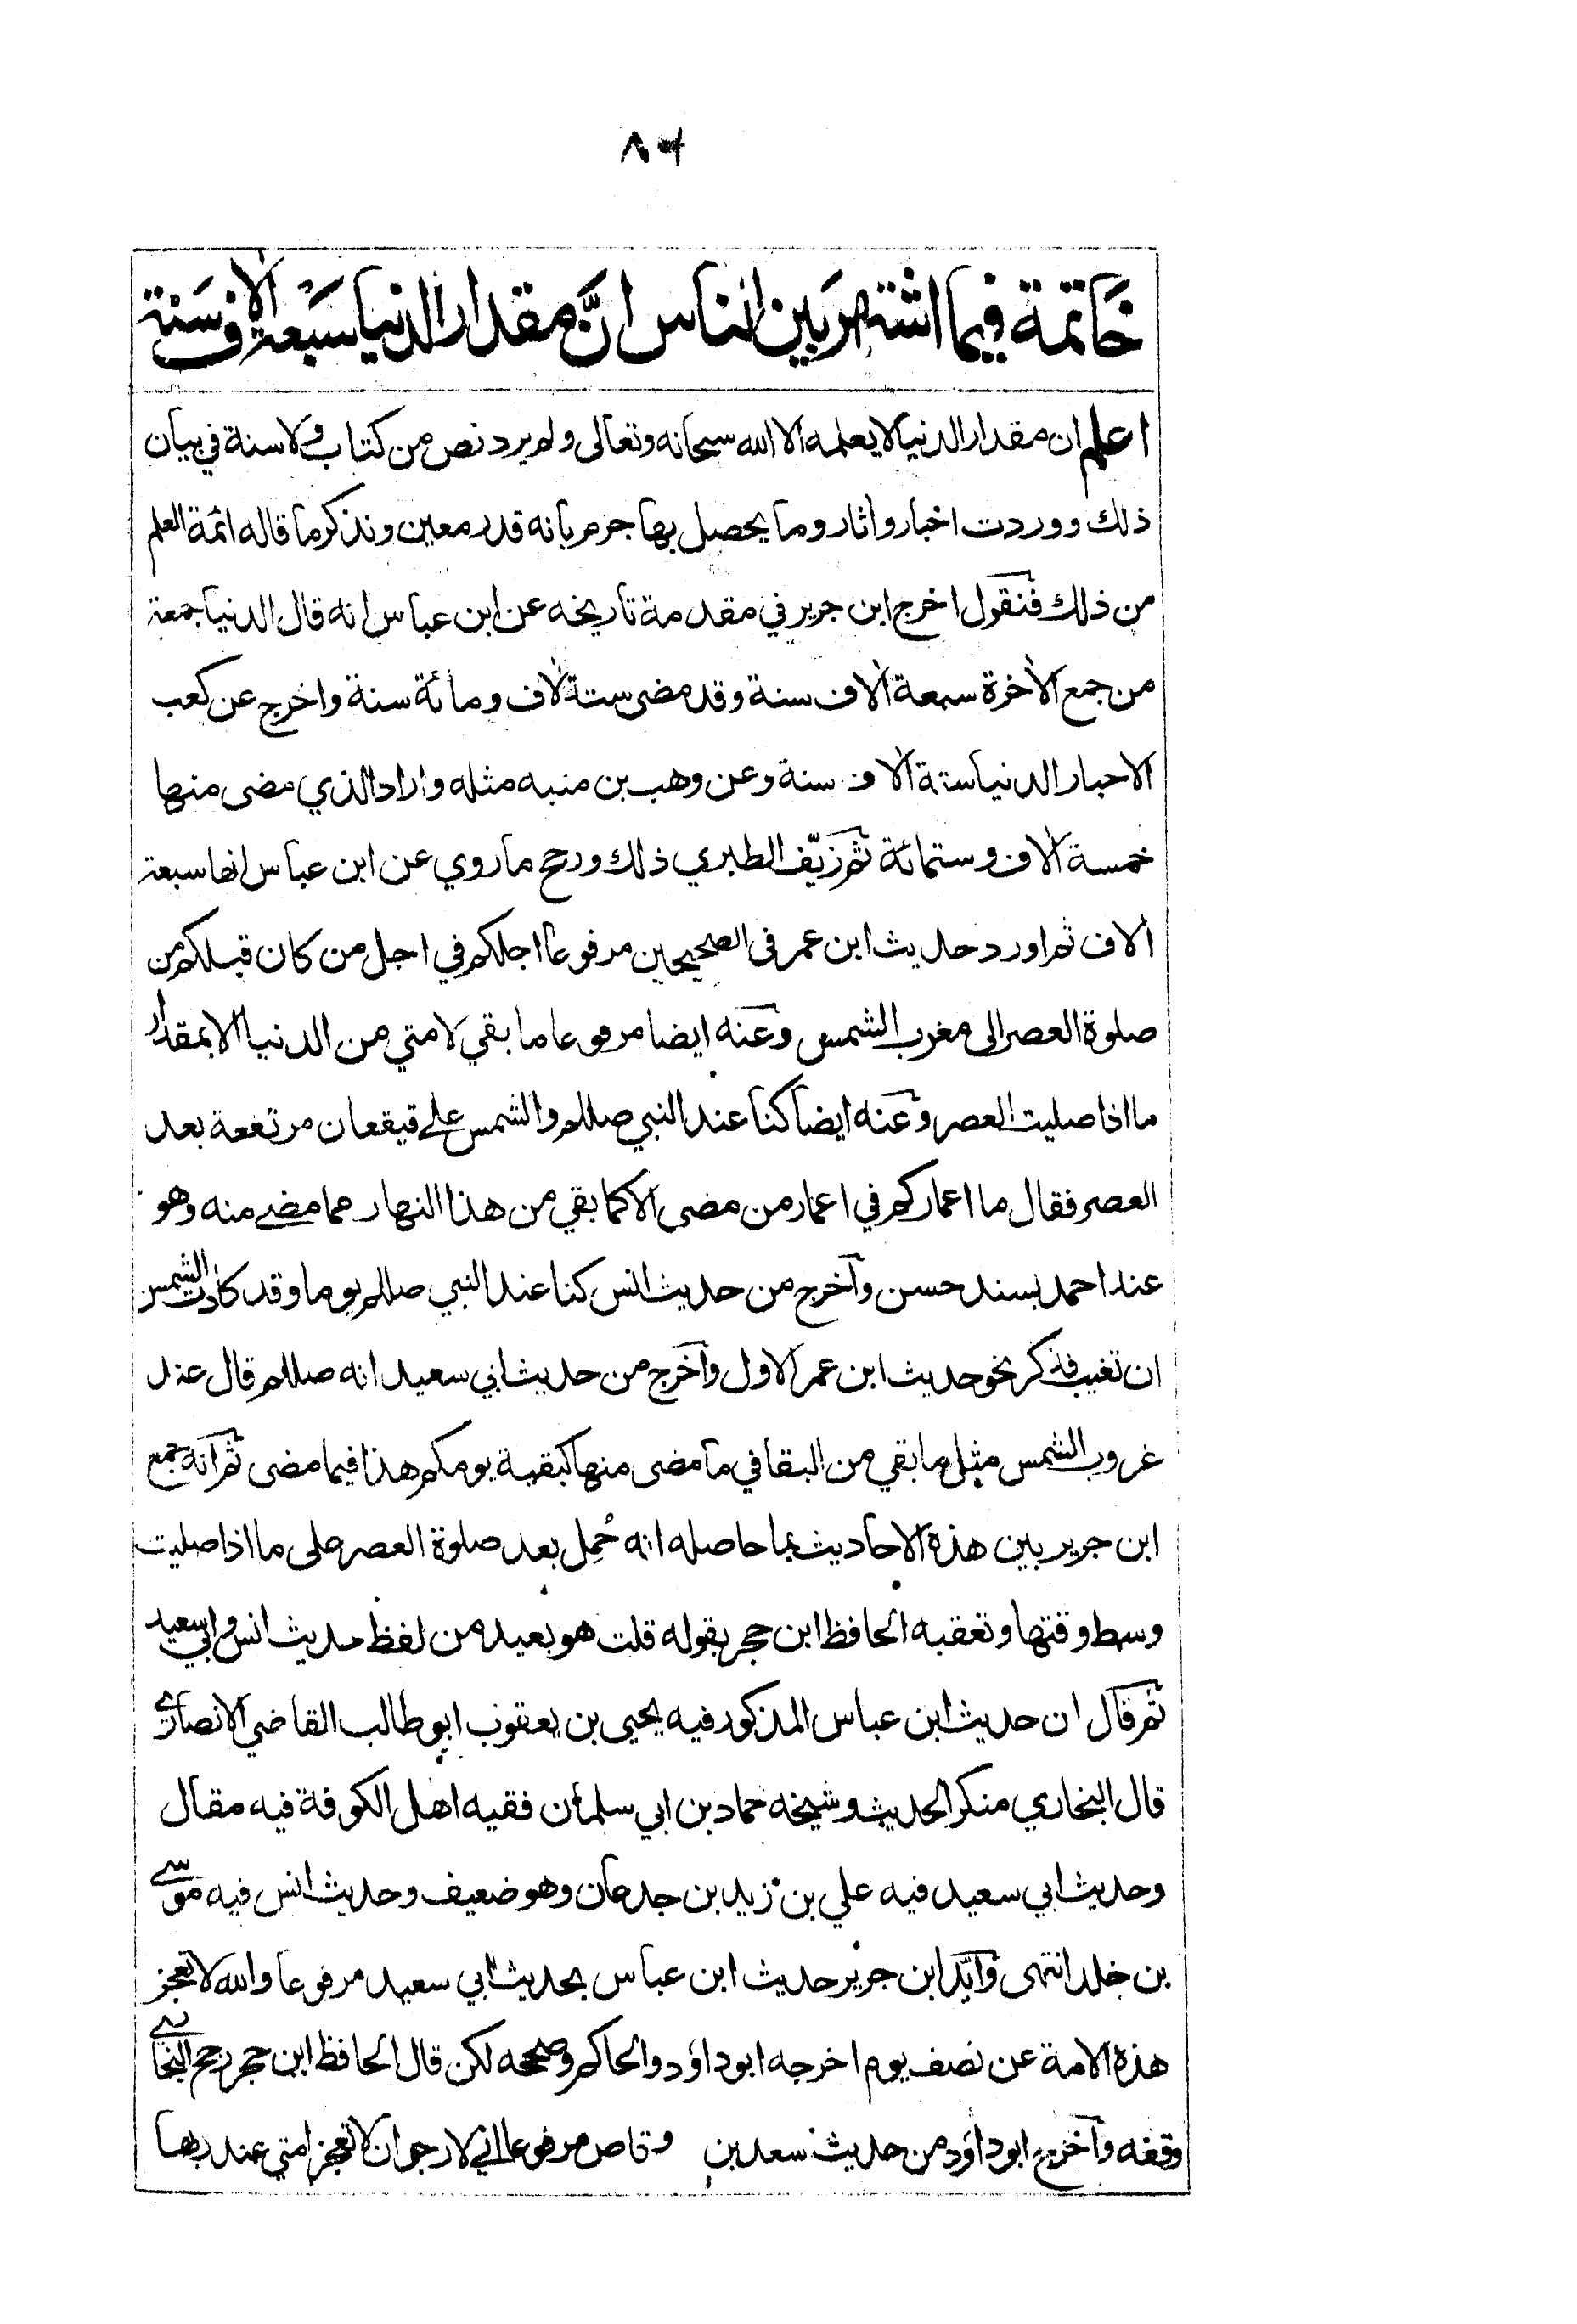 خاتمة فيما اشتهر بين الناس انَّ مقدار الدنيا سبعة الاف سنة
اعلم ان مقدار الدنيا لا يعلمه الا الله سبحانه وتعالى ولم يرد نص من كتاب ولا سنة في بيان
ذلك ووردت اخبار واثار وما يحصل بها جزم بانه قدر معين ونذكر ما قاله ائمة العلم
من ذلك فنقول اخرج ابن جرير في مقدمة تاريخه عن ابن عباس انه قال الدنيا جمعة
من جمع الاخرة سبعة الاف سنة وقد مضى ستة لاف ومائة سنة واخرج عن كعب
الاحبار الدنيا ستة الاف سنة وعن وهب بن منبه مثله وزاد الذي مضى منها
خمسة الاف وستمائة ثم زيّف الطبري ذلك ورجح ما روي عن ابن عباس انها سبعة
الاف ثم اورد حديث ابن عمر فى الصحيحين مرفوعا اجلكم في اجل من كان قبلكم من
صلوة العصر الى مغرب الشمس وعنه ايضا مرفوعا ما بقي لامتي من الدنيا الا بمقدار
ما اذا صليت العصر وعنه ايضا كنا عند النبي صللم والشمس على قيقعان مرتفعة بعد
العصر فقال ما اعماركم في اعمار من مضى الا كما بقي من هذا النهار مما مضے منه وهو
عند احمد بسند حسن وآخرج من حديث انس كنا عند النبي صللم يوما وقد كادت الشمس
ان تغيب فذكر نحو حديث ابن عمر الاول وآخرج من حديث ابي سعيد انه صللم قال عند
غروب الشمس مثل ما بقي من البقا في ما مضى منها كبقية يومكم هذا فيما مضى ثم انه جمع
ابن جرير بين هذه الاحاديث بما حاصله انه حُمِل بعد صلوة العصر على ما اذا صليت
وسط وقتها وتعقبه الحافظ ابن حجر بقوله قلت هو بعيد من لفظ حديث انس وابي سعيد
ثم قال ان حديث ابن عباس المذكور فيه يحيى بن يعقوب ابو طالب القاضي الانصارے
قال البخاري منكر الحديث وشيخه حماد بن ابي سلمان فقيه اهل الكوفة فيه مقال
وحديث ابي سعيد فيه علي بن زيد بن جدعان وهو ضعيف وحديث انس فيه موسے
بن خلد انتهى وآيّد ابن جرير حديث ابن عباس بحديث ابي سعيد مرفوعا والله لا تعجز
هذه الامة عن نصف يوم اخرجه ابو داؤد والحاكم وصححه لكن قال الحافظ ابن حجر رجح البخارے
وقفه وآخرج ابو داؤد من حديث سعد بن وقاص مرفوعا اني لارجو ان لا تعجز امتي عند ربها